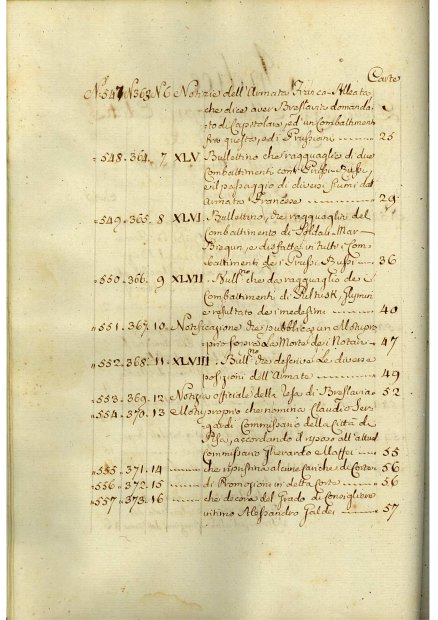 Carte
N.º 547 N 363 N 6 Notizie dell'Armata Franco-Alleata,
che dice aver Breslavia domanda
to di Capitolare, ed un Combattimento
fra questo, ed i Prussiani 25
" 548. 364. 7 XLV. Bullettino che ragguaglia di due
Combattimenti con i Prussi-Russi,
e il passaggio di diversi fiumi dell'
Armata Francese 29
" 549. 365. 8 XLVI. Bullettino, che ragguaglia del
Combattimento di Soldali-Mar-
Biegun, e disfatte in tutti i Com-
battimenti dei Prussi-Russi 36
" 550. 366. 9 XLVII. Bull.no che da ragguaglio de
Combattimenti di Pultusk,
e resultato de i medesimi 40
" 551. 367. 10 Notificazione che pubblica un Motupro-
prio sopra la Morte dei Notari 47
" 552. 368. 11 XLVIII. Bull.no che descrive le diverse
posizioni dell'Armate 49
" 553. 369. 12 Notizia officiale della resa di Breslavia 52
" 554. 370. 13 Motuproprio che nomina Claudio Ser-
gardi Commissario della Città di
Pisa, accordando il riposo all'attual
Commissario Gherardo Maffei 55
" 555. 371. 14 che ripristina alcune Cariche di Corte 56
" 556. 372. 15 di Promozioni in detta Corte 56
" 557. 373. 16 che decora del Grado di Consigliere
intimo Alessandro Galdei 57